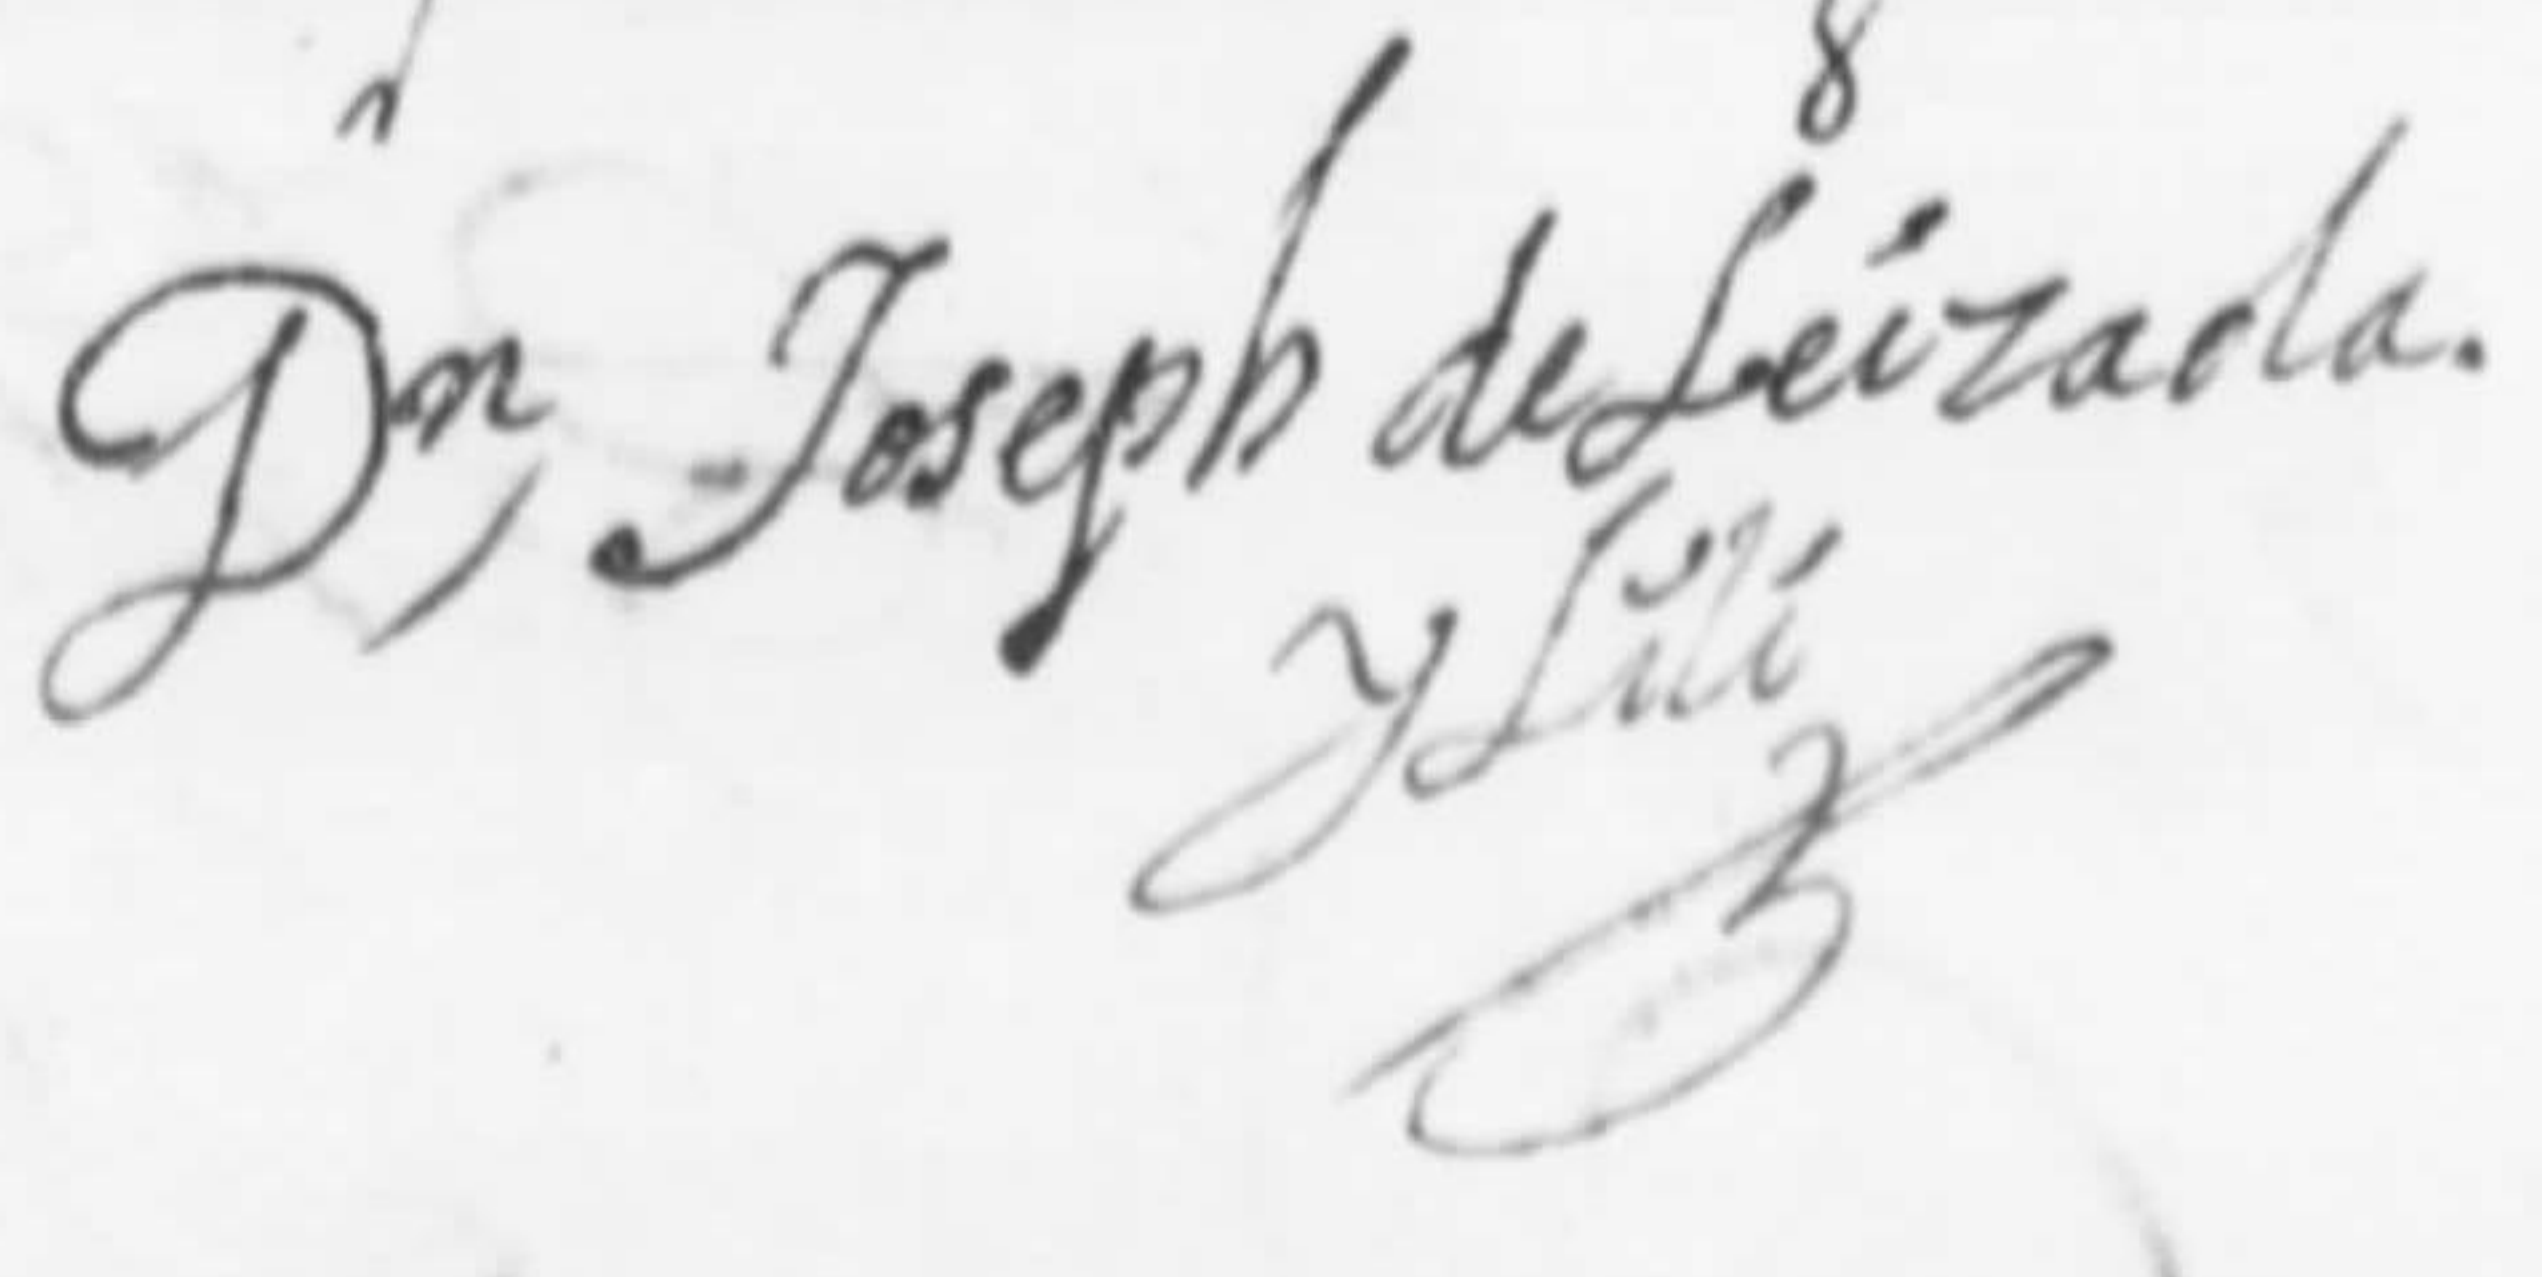 Dn Joseph de Leizaola.
y Lili